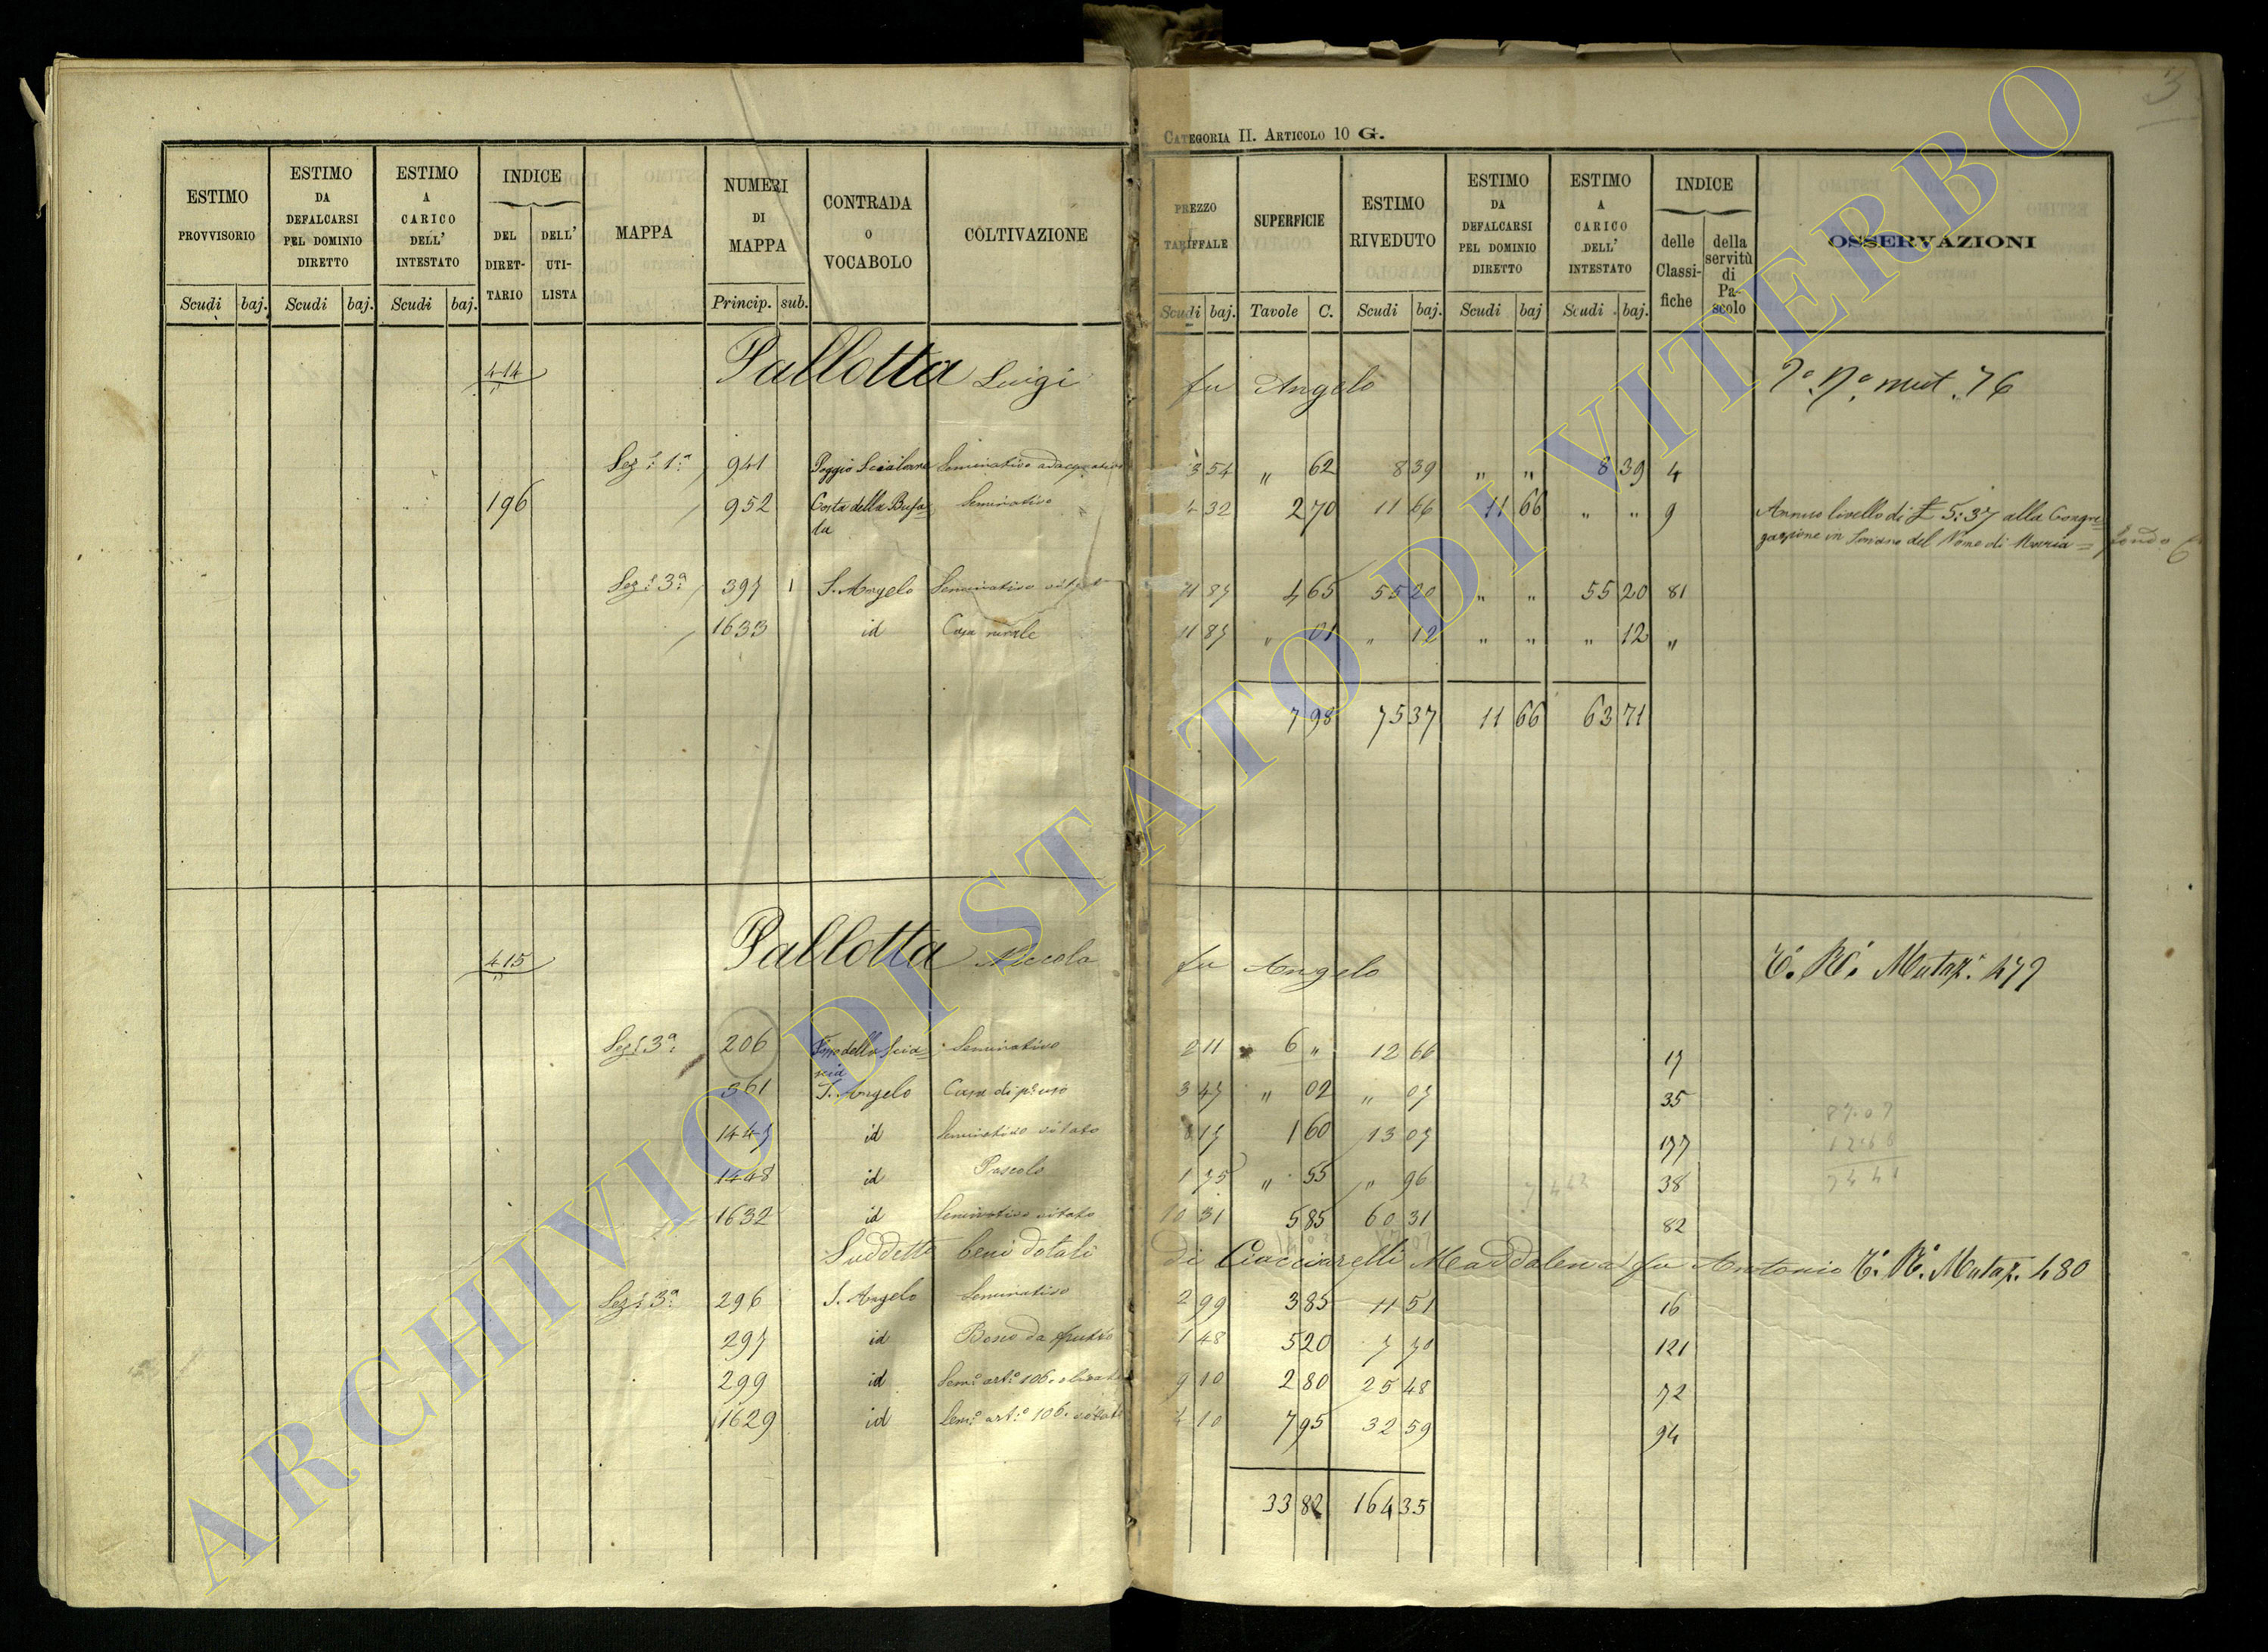 CATEGORIA II. ARTICOLO 10 G.
3
ESTIMO PROVVISORIO Scudi baj.
ESTIMO DA DEFALCARSI PEL DOMINIO DIRETTO Scudi baj.
ESTIMO A CARICO DELL' INTESTATO Scudi baj.
INDICE DEL DIRET-TARIO DELL' UTI-LISTA
MAPPA
NUMERI DI MAPPA Princip. sub.
CONTRADA O VOCABOLO
COLTIVAZIONE
PREZZO TARIFFALE Scudi baj.
SUPERFICIE Tavole C.
ESTIMO RIVEDUTO Scudi baj.
ESTIMO DA DEFALCARSI PEL DOMINIO DIRETTO Scudi baj
ESTIMO A CARICO DELL' INTESTATO Scudi baj.
INDICE delle Classi-fiche della servitù di Pa-scolo
OSSERVAZIONI
414 Pallotta Luigi fu Angelo mut. 76
Sez.e 1a 941 Poggio Seminativo adacquativo 3 54 " 62 8 39 " " 8 39 4
196 952 Costa della Bufa= Seminativo 4 32 2 70 11 66 11 66 " " 9 Annuo livello di £ 5:37 alla Congre=
la gazione in Soriano del Nome di Maria= fondo 6
Sez.e 3a 397 1 S. Angelo Seminativo vitato 11 87 4 65 55 20 " " 55 20 81
1633 id Casa rurale 11 87 " 01 " 12 " " " 12 "
7 98 75 37 11 66 63 71
415 Pallotta Niccola fu Angelo Mutaz. 479
Sez.e 3a 206 della Scia= Seminativo 2 11 6 " 12 66 17
361 S. Angelo Casa di p. uso 3 47 " 02 " 07 35
1447 id Seminativo vitato 8 17 1 60 13 07 177
1448 id Pascolo 1 75 " 55 " 96 38
1632 id Seminativo vitato 10 31 5 85 60 31 82
Suddetti beni dotali di Ciacciarelli Maddalena fu Antonio Mutaz. 480
Sez.e 3a 296 S. Angelo Seminativo 2 99 3 85 11 51 16
297 id Bosco da frutto 1 48 5 20 7 70 121
299 id Sem.o art.o 106. olivato 9 10 2 80 25 48 72
1629 id Sem.o art.o 106. vitato 4 10 7 95 32 59 94
33 82 164 35
ARCHIVIO DI STATO DI VITERBO